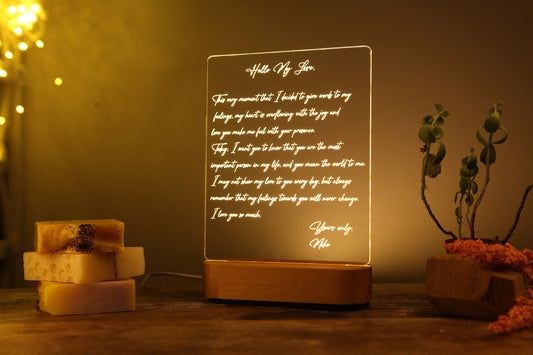 Hello My Love,
This very moment that I decided to give words to my
feelings, my heart is overflowing with the joy and
love you make me feel with your presence.
Today, I want you to know that you are the most
important person in my life, and you mean the world to me.
I may not show my love to you every day, but always
remember that my feelings towards you will never change.
I love you so much.
Yours only,